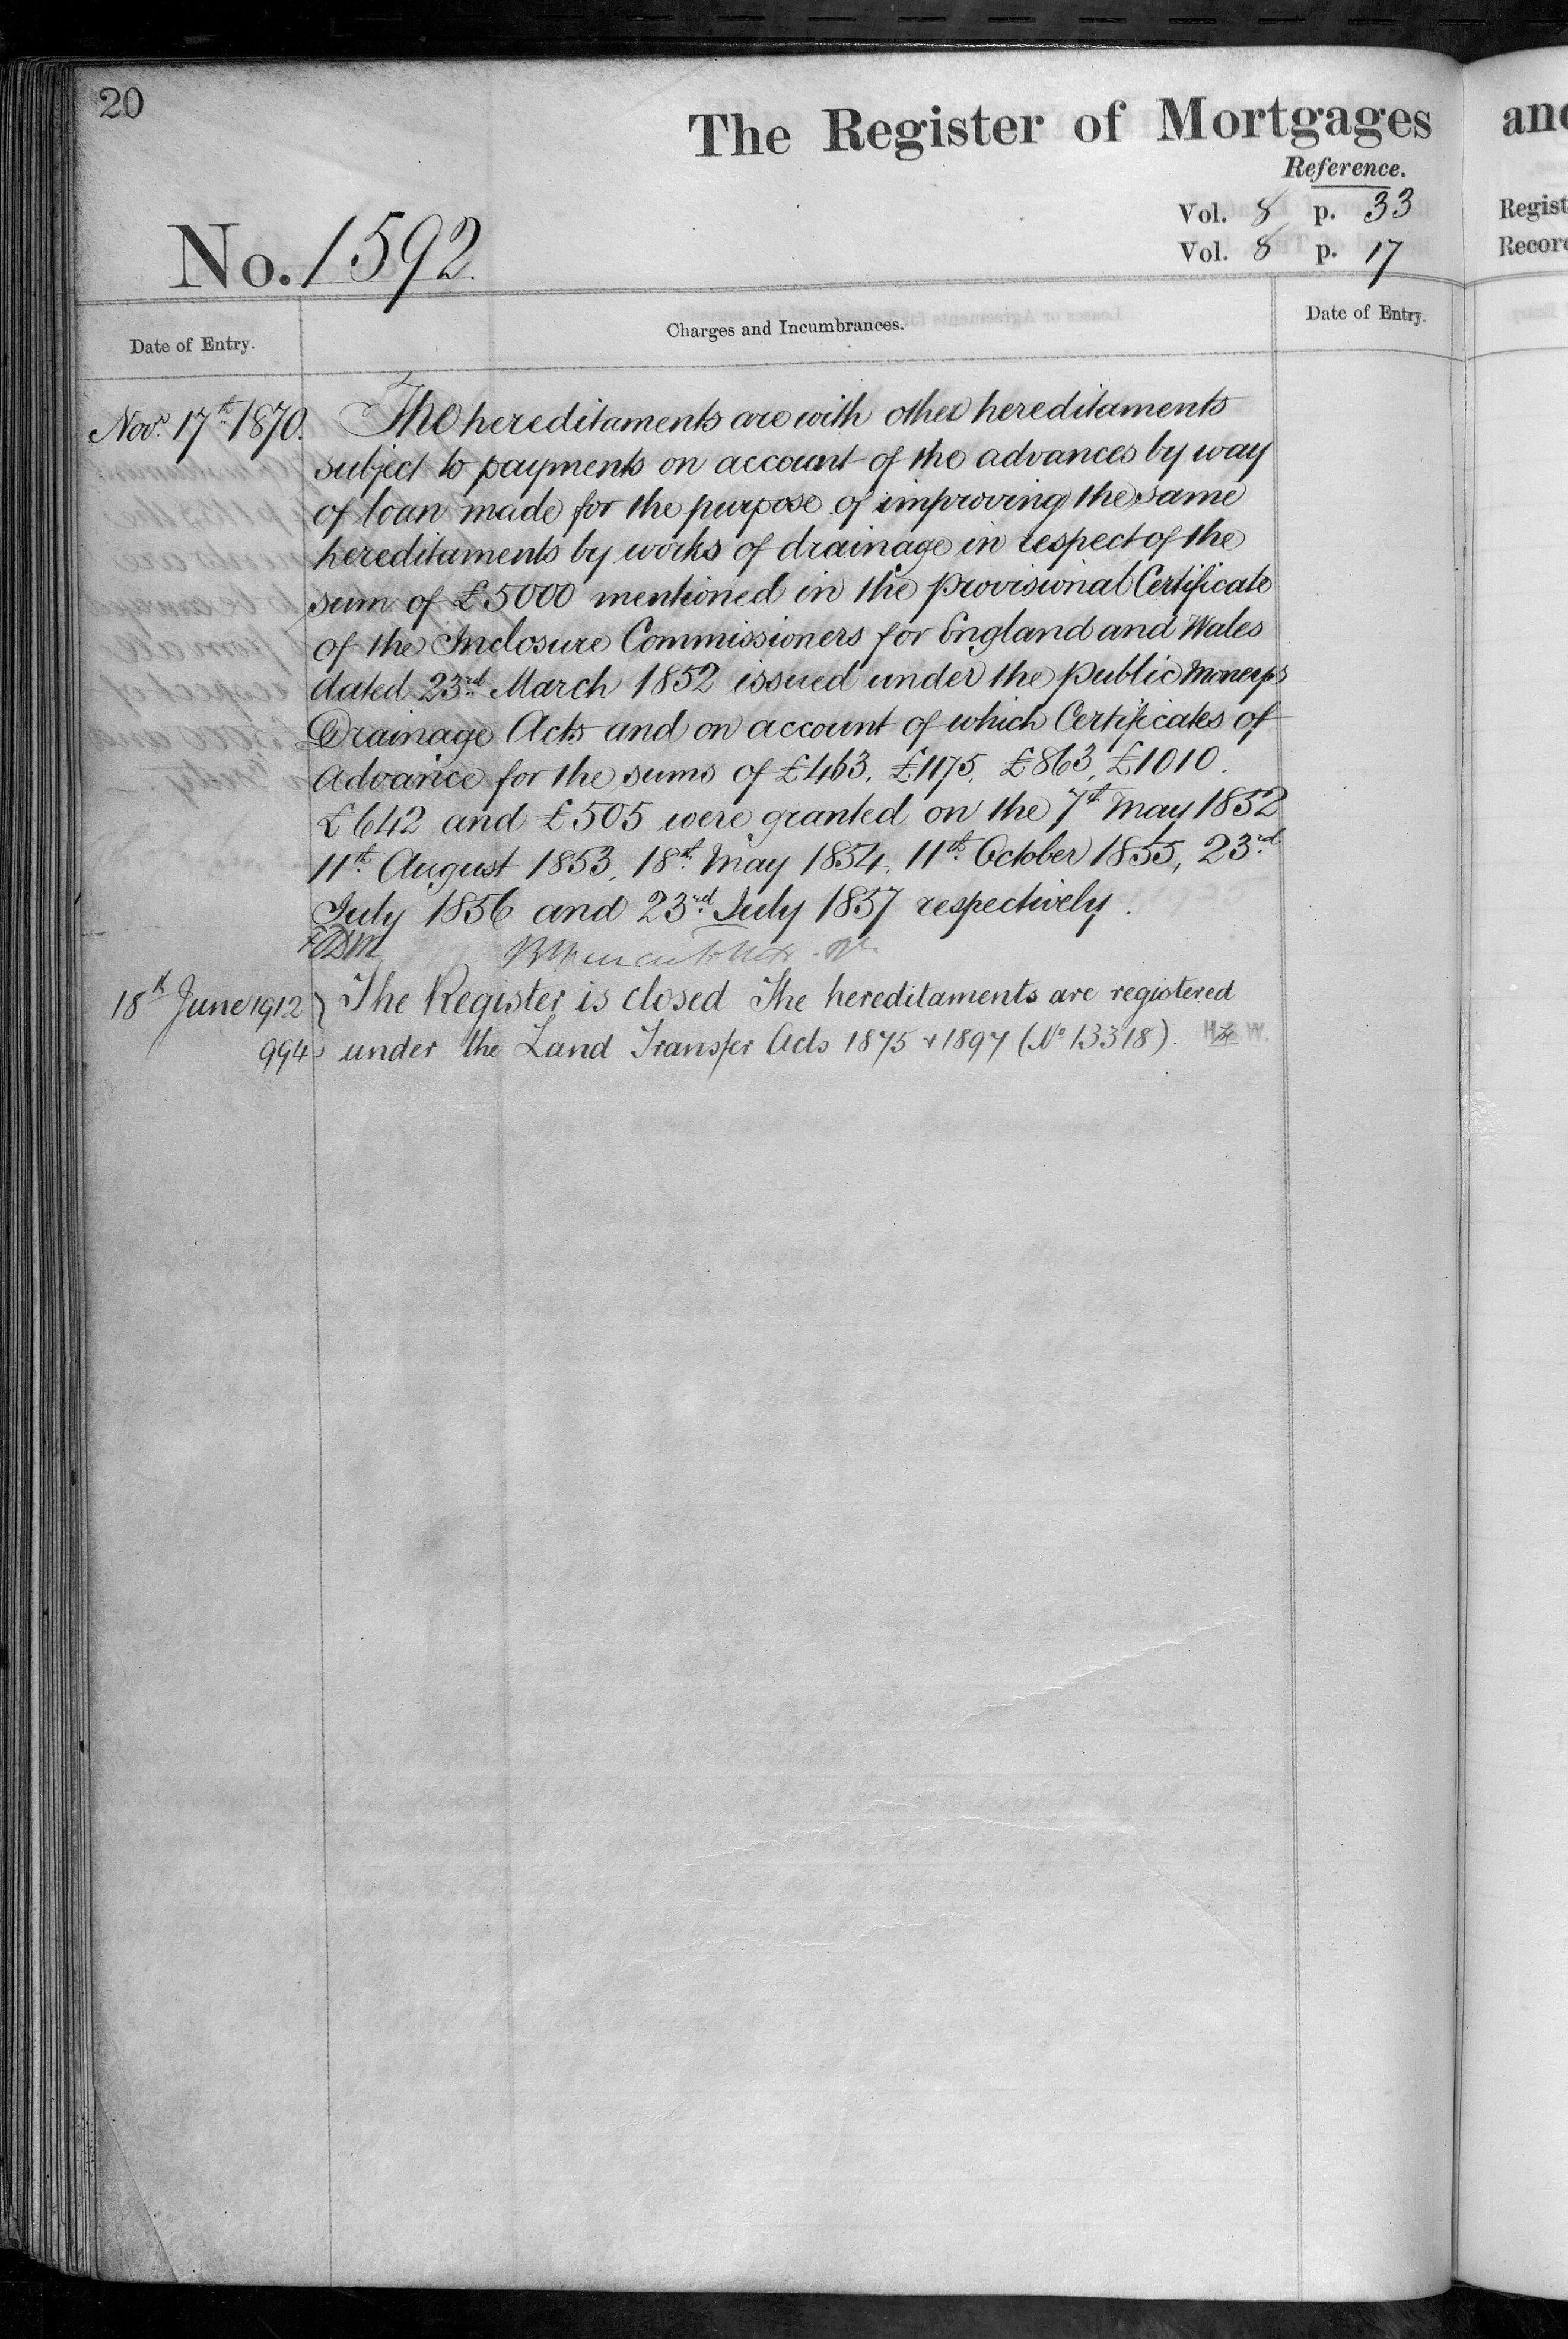 20
The Register of Mortgages
Reference.
Vol. 8 p. 33
Vol. 8 p. 17
No. 1592.
Date of Entry.
Charges and Incumbrances.
Date of Entry.
Novr. 17th 1870.
The hereditaments are with other hereditaments
subject to payments on account of the advances by way
of loan made for the purpose of improving the same
hereditaments by works of drainage in respect of the
sum of £5000 mentioned in the provisional Certificate
of the Inclosure Commissioners for England and Wales
dated 23rd March 1852 issued under the public moneys
Drainage Acts and on account of which Certificates of
Advance for the sums of £463, £1175, £863, £1010.
£642 and £505 were granted on the 7th May 1852
11th August 1853, 18th May 1854, 11th October 1855, 23rd
July 1856 and 23rd July 1857 respectively.
18th June 1912
994
The Register is closed The hereditaments are registered
under the Land Transfer Acts 1875 & 1897 (No 13318).
and
Regist
Recor